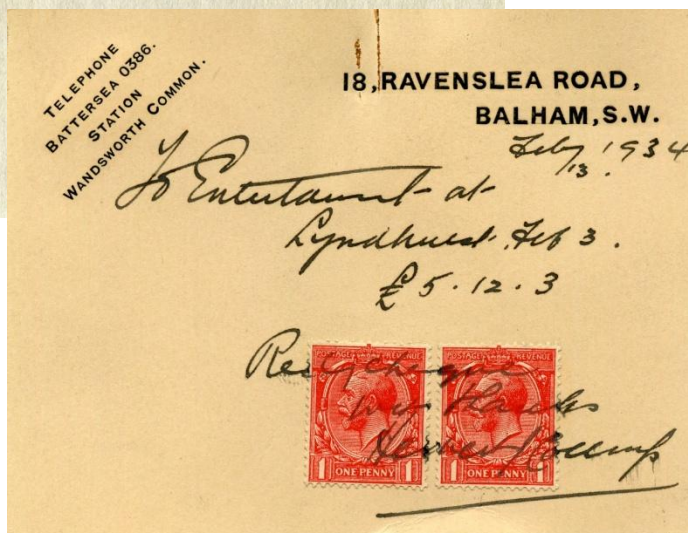 TELEPHONE
BATTERSEA 0386.
STATION
WANDSWORTH COMMON.
18, RAVENSLEA ROAD,
BALHAM, S.W.
Feby 13. 1934
To Entertainmt at
Lyndhurst Feb 3.
£5.12.3
Recd cheque
with thanks
POSTAGE & REVENUE POSTAGE & REVENUE
1 ONE PENNY 1 1 ONE PENNY 1